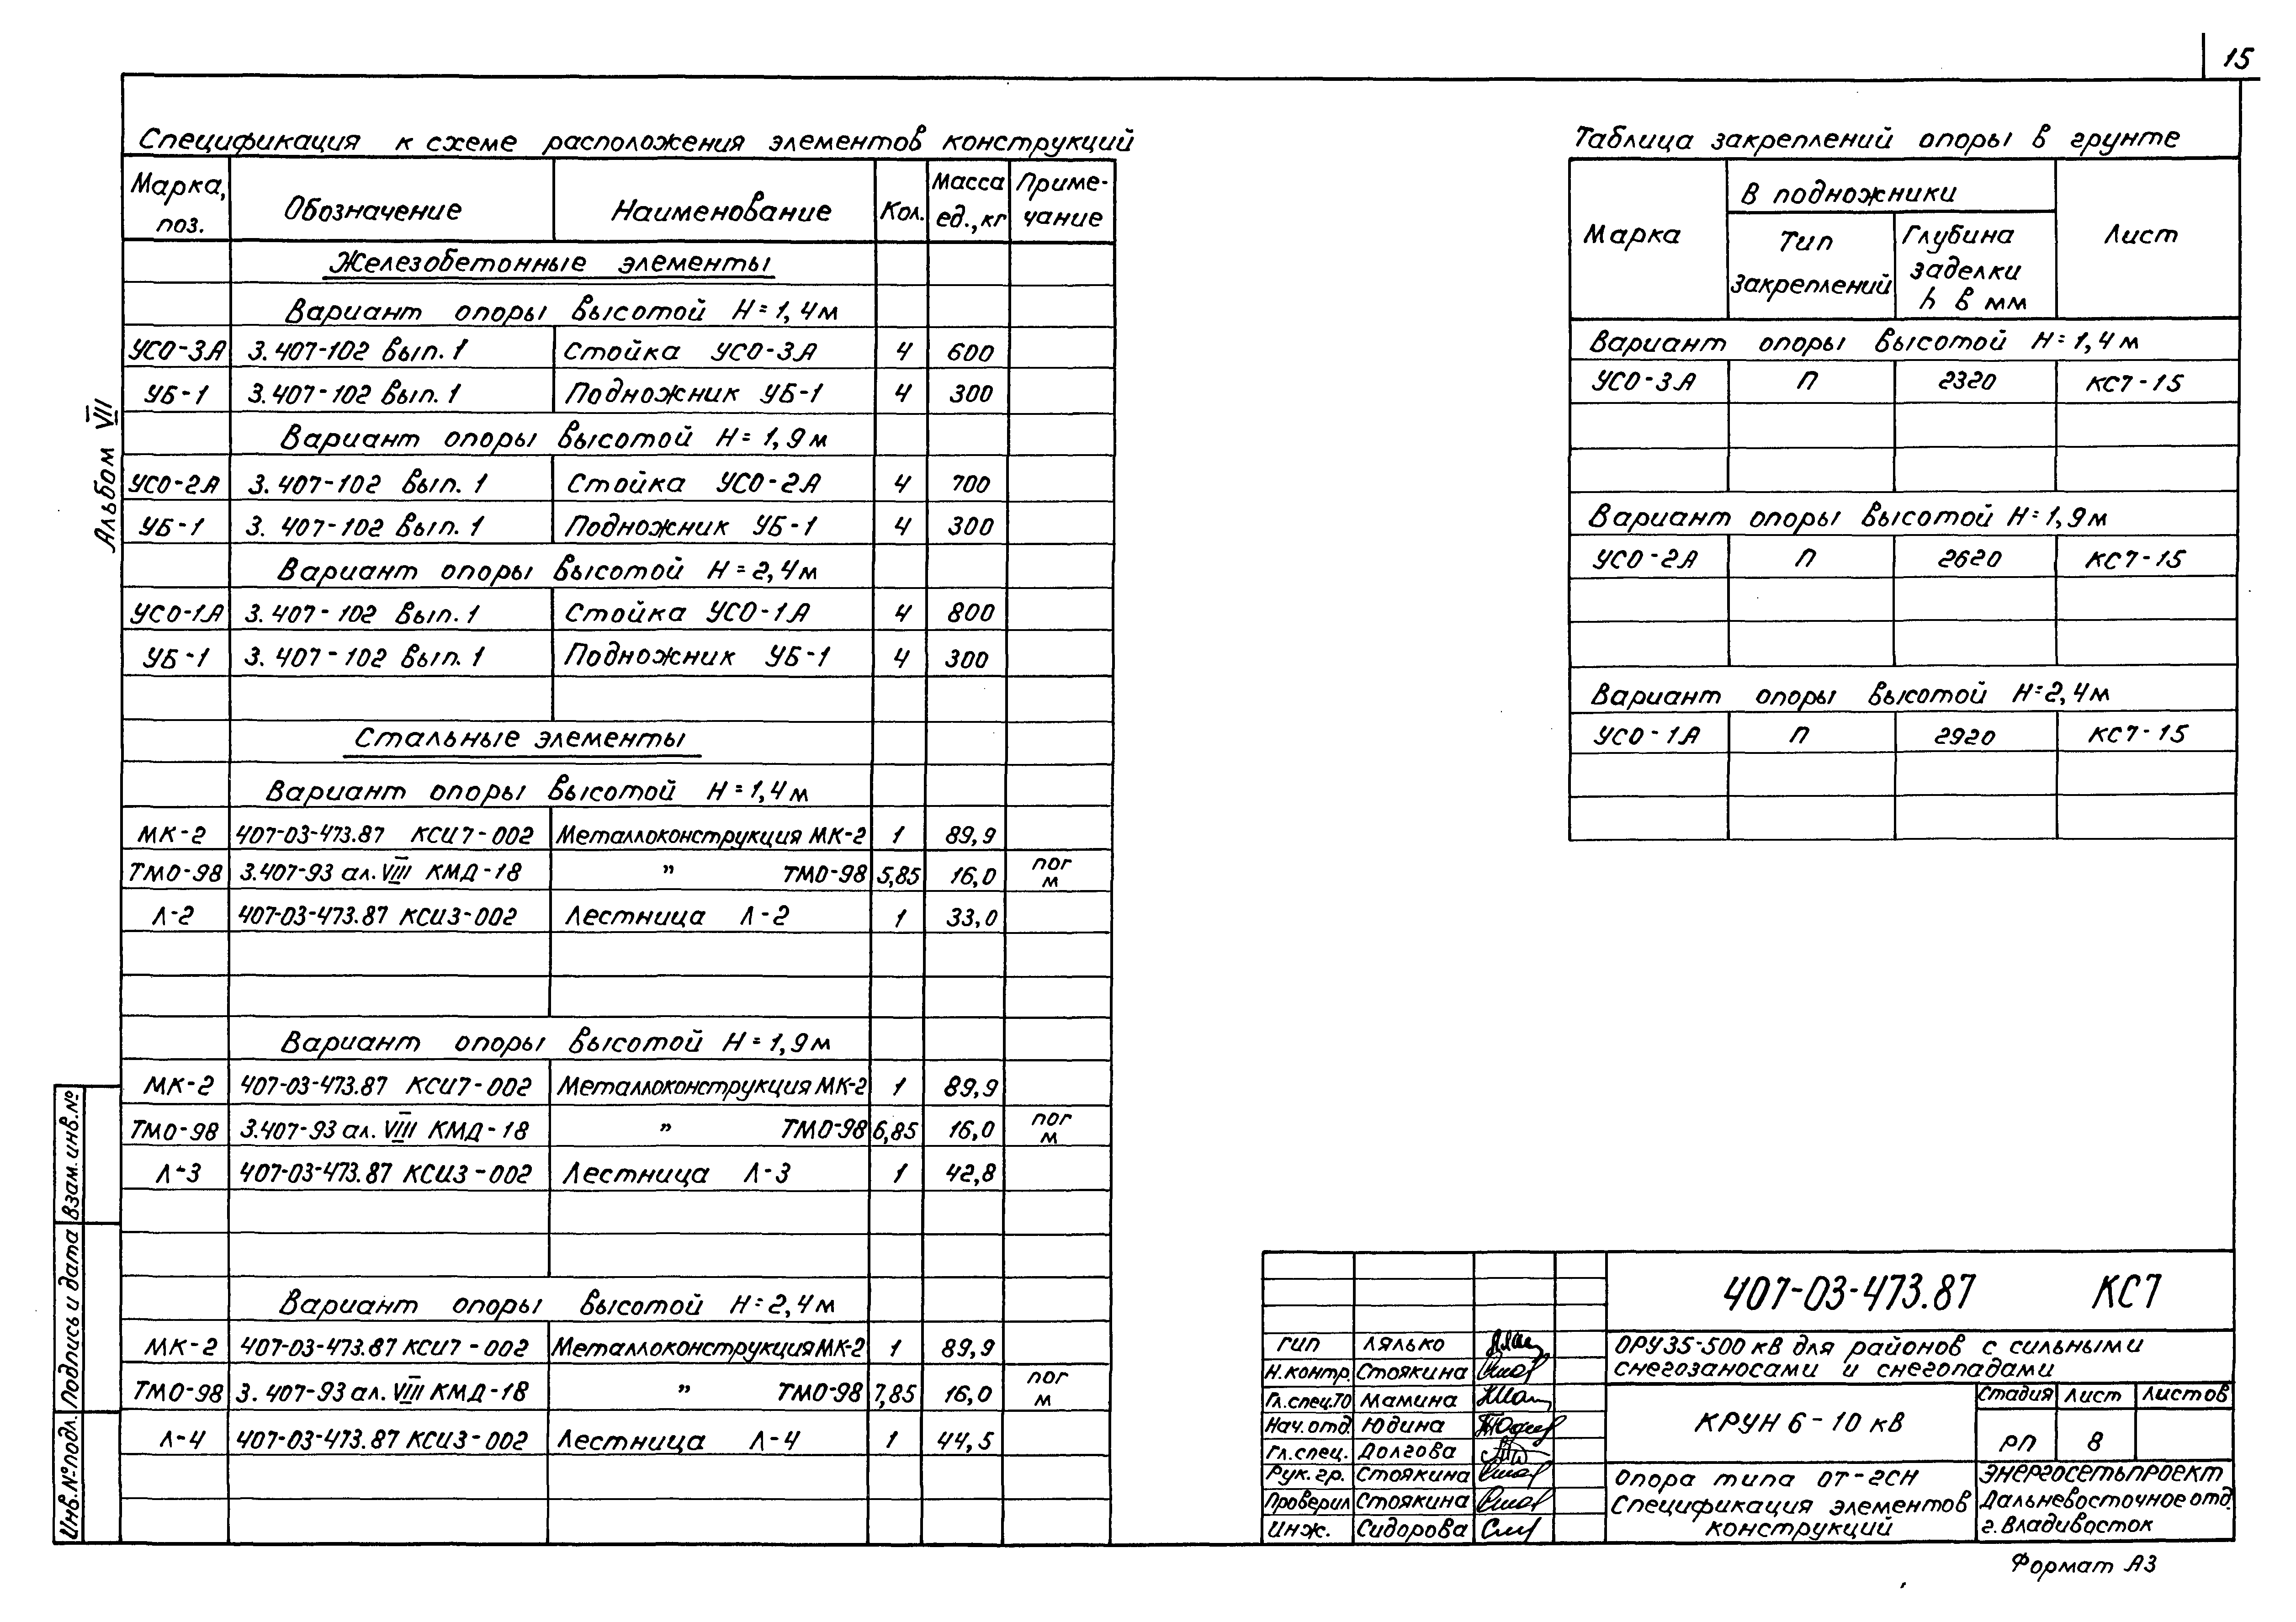 15
Спецификация к схеме расположения элементов конструкций
Марка, поз. Обозначение Наименование Кол. Масса ед., кг Приме-чание
Железобетонные элементы
Вариант опоры высотой H=1,4м
УСО-3А 3.407-102 Вып. 1 Стойка УСО-3А 4 600
УБ-1 3.407-102 Вып. 1 Подножник УБ-1 4 300
Вариант опоры высотой H=1,9м
УСО-2А 3.407-102 Вып. 1 Стойка УСО-2А 4 700
УБ-1 3.407-102 Вып. 1 Подножник УБ-1 4 300
Вариант опоры высотой H=2,4м
УСО-1А 3.407-102 Вып. 1 Стойка УСО-1А 4 800
УБ-1 3.407-102 Вып. 1 Подножник УБ-1 4 300
Стальные элементы
Вариант опоры высотой H=1,4м
МК-2 407-03-473.87 КСИ7-002 Металлоконструкция МК-2 1 89,9
ТМО-98 3.407-93 ал. VIII КМД-18 " ТМО-98 5,85 16,0 пог м
Л-2 407-03-473.87 КСИ3-002 Лестница Л-2 1 33,0
Вариант опоры высотой H=1,9м
МК-2 407-03-473.87 КСИ7-002 Металлоконструкция МК-2 1 89,9
ТМО-98 3.407-93 ал. VIII КМД-18 " ТМО-98 6,85 16,0 пог м
Л-3 407-03-473.87 КСИ3-002 Лестница Л-3 1 42,8
Вариант опоры высотой H=2,4м
МК-2 407-03-473.87 КСИ7-002 Металлоконструкция МК-2 1 89,9
ТМО-98 3.407-93 ал. VIII КМД-18 " ТМО-98 7,85 16,0 пог м
Л-4 407-03-473.87 КСИ3-002 Лестница Л-4 1 44,5
Таблица закреплений опоры в грунте
Марка В подножники Лист
Тип закреплений Глубина заделки h в мм
Вариант опоры высотой H=1,4м
УСО-3А П 2320 КС7-15
Вариант опоры высотой H=1,9м
УСО-2А П 2620 КС7-15
Вариант опоры высотой H=2,4м
УСО-1А П 2920 КС7-15
Альбом VII
Взам. инв. №
Подпись и дата
Инв. № подл.
407-03-473.87 КС7
ГИП Лялько
Н.контр. Стоякина
Гл.спец.ТО Мамина
Нач.отд. Юдина
Гл.спец. Долгова
Рук.гр. Стоякина
Проверил Стоякина
Инж. Сидорова
ОРУ35-500 кВ для районов с сильными
снегозаносами и снегопадами
КРУН 6-10 кВ
Стадия Лист Листов
РП 8
Опора типа ОТ-2СН
Спецификация элементов
конструкций
Энергосетьпроект
Дальневосточное отд.
г. Владивосток
Формат А3